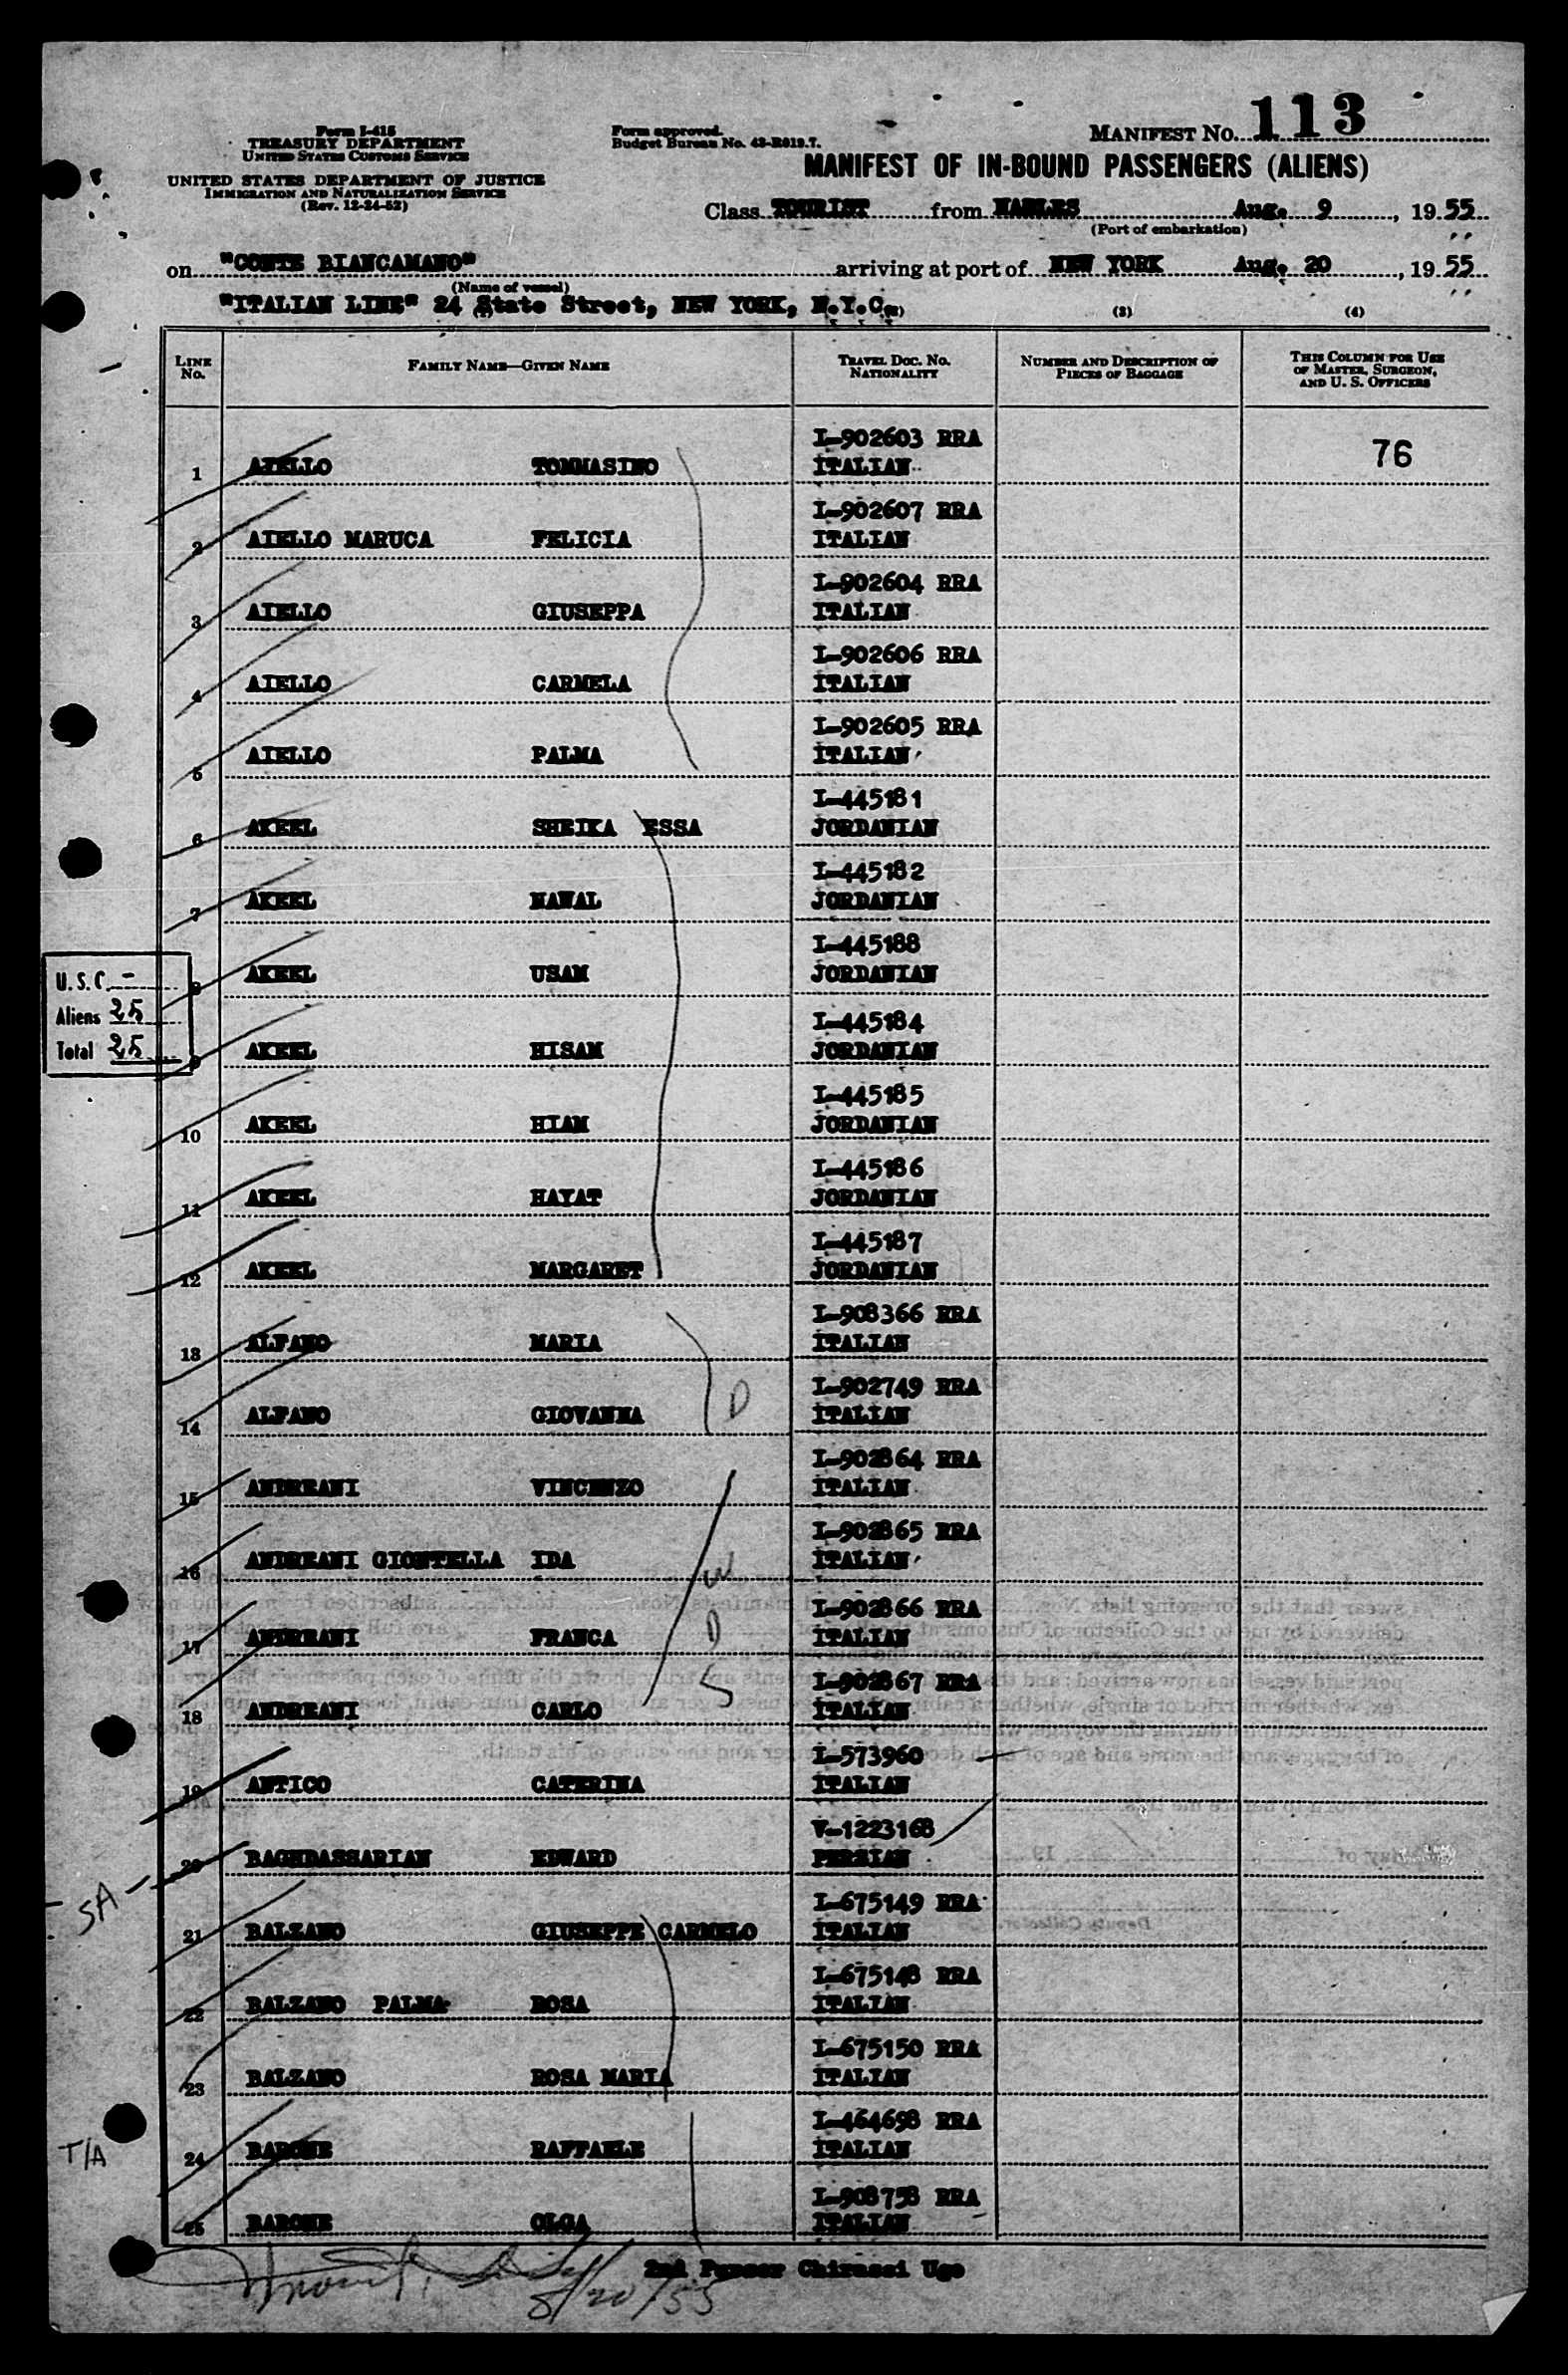 Form I-418
TREASURY DEPARTMENT
UNITED STATES CUSTOMS SERVICE
UNITED STATES DEPARTMENT OF JUSTICE
IMMIGRATION AND NATURALIZATION SERVICE
(Rev. 12-24-52)
Form approved.
Budget Bureau No. 43-R019.7.
MANIFEST NO. 113
MANIFEST OF IN-BOUND PASSENGERS (ALIENS)
Class TOURIST from NAPLES Aug. 9, 1955
(Port of embarkation)
on "CONTE BIANCAMANO" arriving at port of NEW YORK Aug. 20, 1955
(Name of vessel)
"ITALIAN LINE" 24 State Street, NEW YORK, N.Y.C.
(3) (4)
LINE NO. FAMILY NAME—GIVEN NAME TRAVEL DOC. NO. NATIONALITY NUMBER AND DESCRIPTION OF PIECES OF BAGGAGE THIS COLUMN FOR USE OF MASTER, SURGEON, AND U. S. OFFICERS
I-902603 RRA 76
1 AIELLO TOMMASINO ITALIAN
I-902607 RRA
2 AIELLO MARUCA FELICIA ITALIAN
I-902604 RRA
3 AIELLO GIUSEPPA ITALIAN
I-902606 RRA
4 AIELLO CARMELA ITALIAN
I-902605 RRA
5 AIELLO PALMA ITALIAN
I-445181
6 AKEEL SHEIKA ESSA JORDANIAN
I-445182
7 AKEEL NAWAL JORDANIAN
I-445188
8 AKEEL USAM JORDANIAN
U.S.C. -
Aliens 25
Total 25
I-445184
9 AKEEL HISAM JORDANIAN
I-445185
10 AKEEL HIAM JORDANIAN
I-445186
11 AKEEL HAYAT JORDANIAN
I-445187
12 AKEEL MARGARET JORDANIAN
I-908366 RRA
13 ALFANO MARIA ITALIAN
I-902749 RRA
14 ALFANO GIOVANNA D ITALIAN
I-902864 RRA
15 ANDREANI VINCENZO ITALIAN
I-902865 RRA
16 ANDREANI GIONTELLA IDA W ITALIAN
I-902866 RRA
17 ANDREANI FRANCA D ITALIAN
I-902867 RRA
18 ANDREANI CARLO S ITALIAN
I-573960
19 ANTICO CATERINA ITALIAN
V-1223168
20 BAGHDASSARIAN EDWARD PERSIAN
SA
I-675149 RRA
21 BALZANO GIUSEPPE CARMELO ITALIAN
I-675148 RRA
22 BALZANO PALMA ROSA ITALIAN
I-675150 RRA
23 BALZANO ROSA MARIA ITALIAN
I-464698 RRA
T/A 24 BARONE RAFFAELE ITALIAN
I-908758 RRA
25 BARONE OLGA ITALIAN
2nd Purser Chirassi Ugo
8/20/55